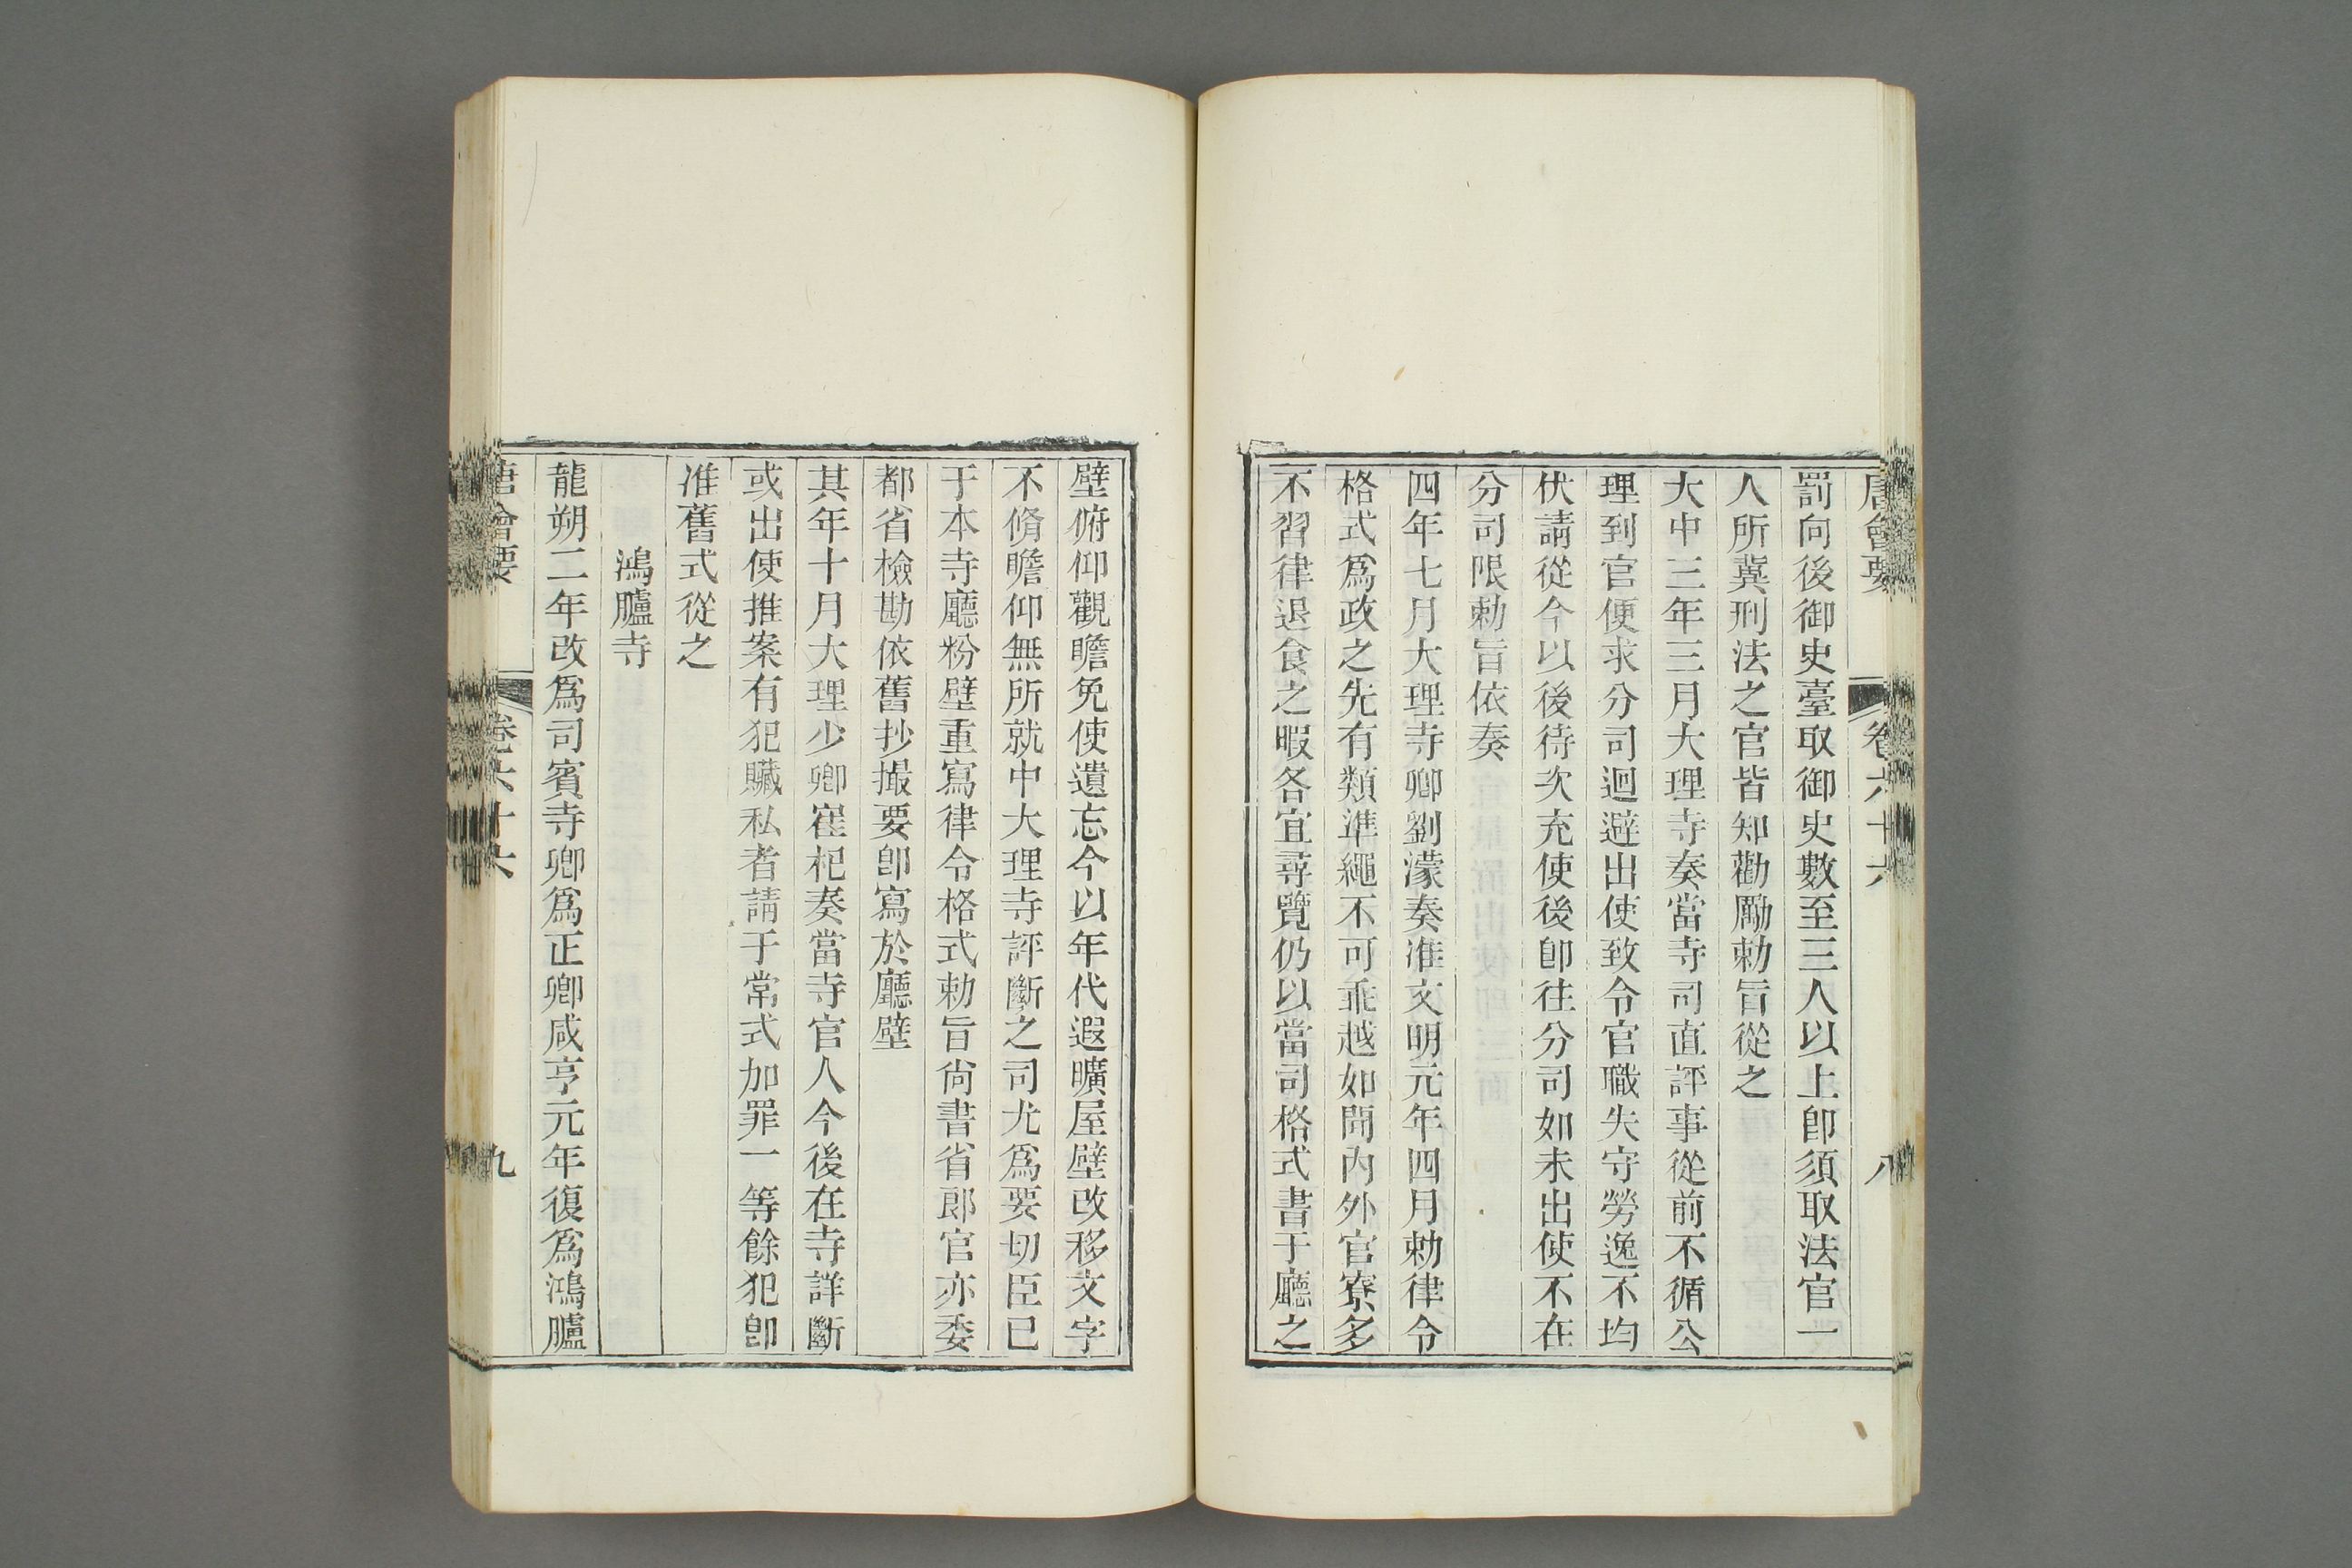 唐會要 卷六十六 八
罰向後御史臺取御史數至三人以上卽須取法官一
人所冀刑法之官皆知勸勵勅旨從之
大中三年三月大理寺奏當寺司直評事從前不循公
理到官便求分司迴避出使致令官職失守勞逸不均
伏請從今以後待次充使後卽往分司如未出使不在
分司限勅旨依奏
四年七月大理寺卿劉濛奏准文明元年四月勅律令
格式爲政之先有類準繩不可乖越如聞內外官寮多
不習律退食之暇各宜尋覽仍以當司格式書于廳之
壁俯仰觀瞻免使遺忘今以年代遐曠屋壁改移文字
不脩瞻仰無所就中大理寺評斷之司尤爲要切臣已
于本寺廳粉壁重寫律令格式勅旨尙書省郞官亦委
都省檢勘依舊抄撮要卽寫於廳壁
其年十月大理少卿崔杞奏當寺官人今後在寺詳斷
或出使推案有犯贓私者請于常式加罪一等餘犯卽
准舊式從之
鴻臚寺
龍朔二年改爲司賓寺卿爲正卿咸亨元年復爲鴻臚
唐會要 卷六十六 九